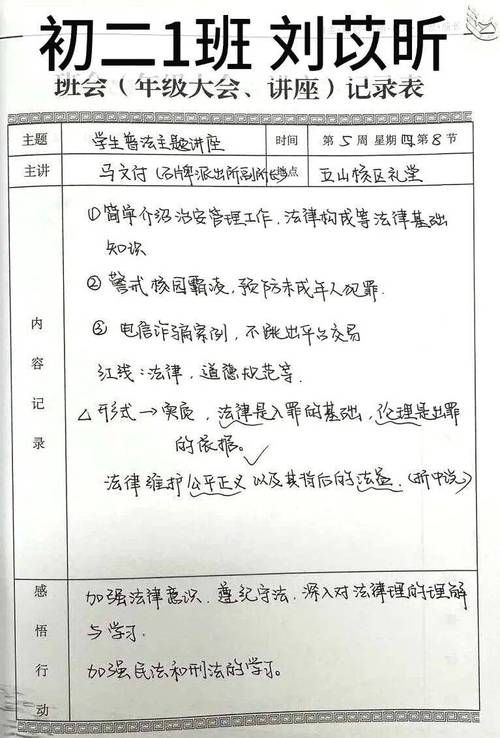 初二1班 刘苡昕
班会（年级大会、讲座）记录表
主题 学生普法主题讲座 时间 第5周 星期四 第8节
主讲 马文付（石牌派出所副所长） 地点 五山校区礼堂
内容记录
①简单介绍治安管理工作、法律构成等法律基础
知识
②警式校园霸凌,预防未成年人犯罪.
③电信诈骗案例,不跳出平台交易
红线：法律,道德规范等.
△形式→实质,法律是入罪的基础,伦理是出罪
的依据。
法律维护公平正义以及其背后的法益.(折中说)
感悟行动
加强法律意识、遵纪守法,深入对法律理的理解
与学习.
加强民法和刑法的学习。